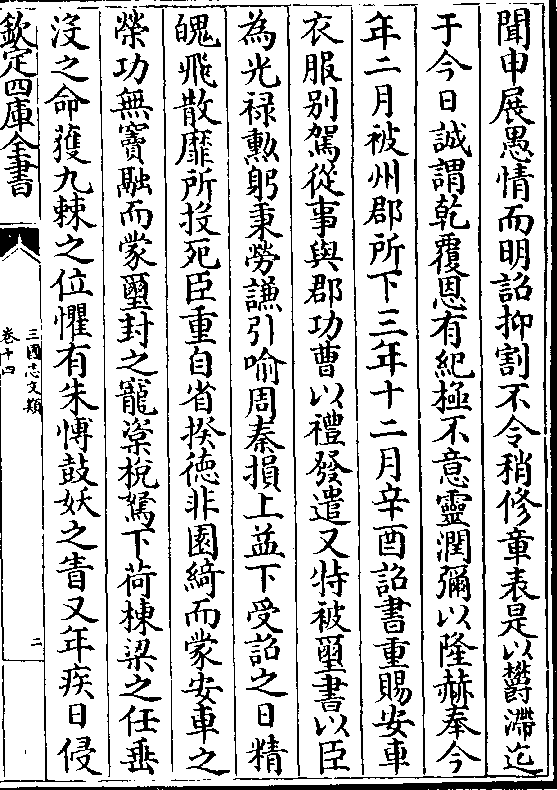 聞申展愚情而明詔抑割不令稍修章表是以鬱滯迄
于今日誠謂乾覆恩有紀極不意靈潤彌以隆赫奉今
年二月被州郡所下三年十二月辛酉詔書重賜安車
衣服别駕從事與郡功曹以禮發遣又特被璽書以臣
為光禄勲躬秉勞謙引喻周秦損上益下受詔之日精
魄飛散靡所投死臣重自省揆徳非園綺而蒙安車之
榮功無竇融而蒙璽封之寵楶梲駑下荷棟梁之任垂
沒之命獲九棘之位懼有朱博鼓妖之眚又年疾日侵
欽定四庫全書
三國志文類
卷十四
二